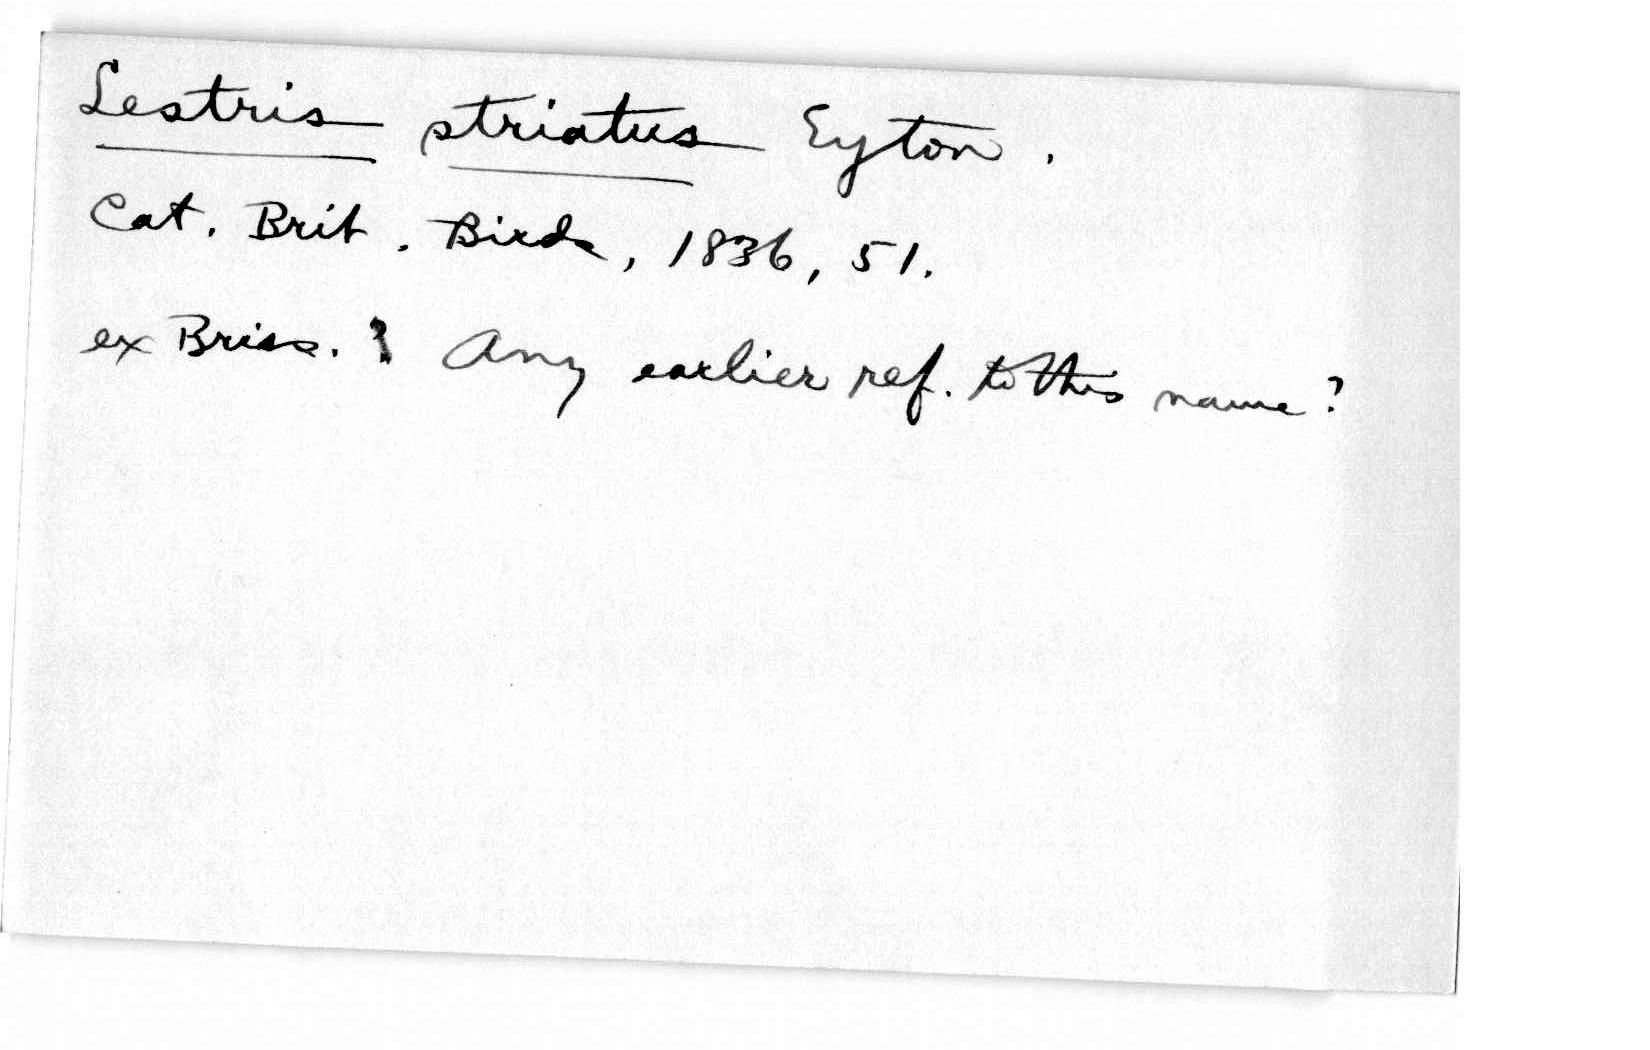 Lestris striatus Eyton.
Cat. Brit. Birds, 1836, 51.
ex Briss. ? Any earlier ref. to this name?